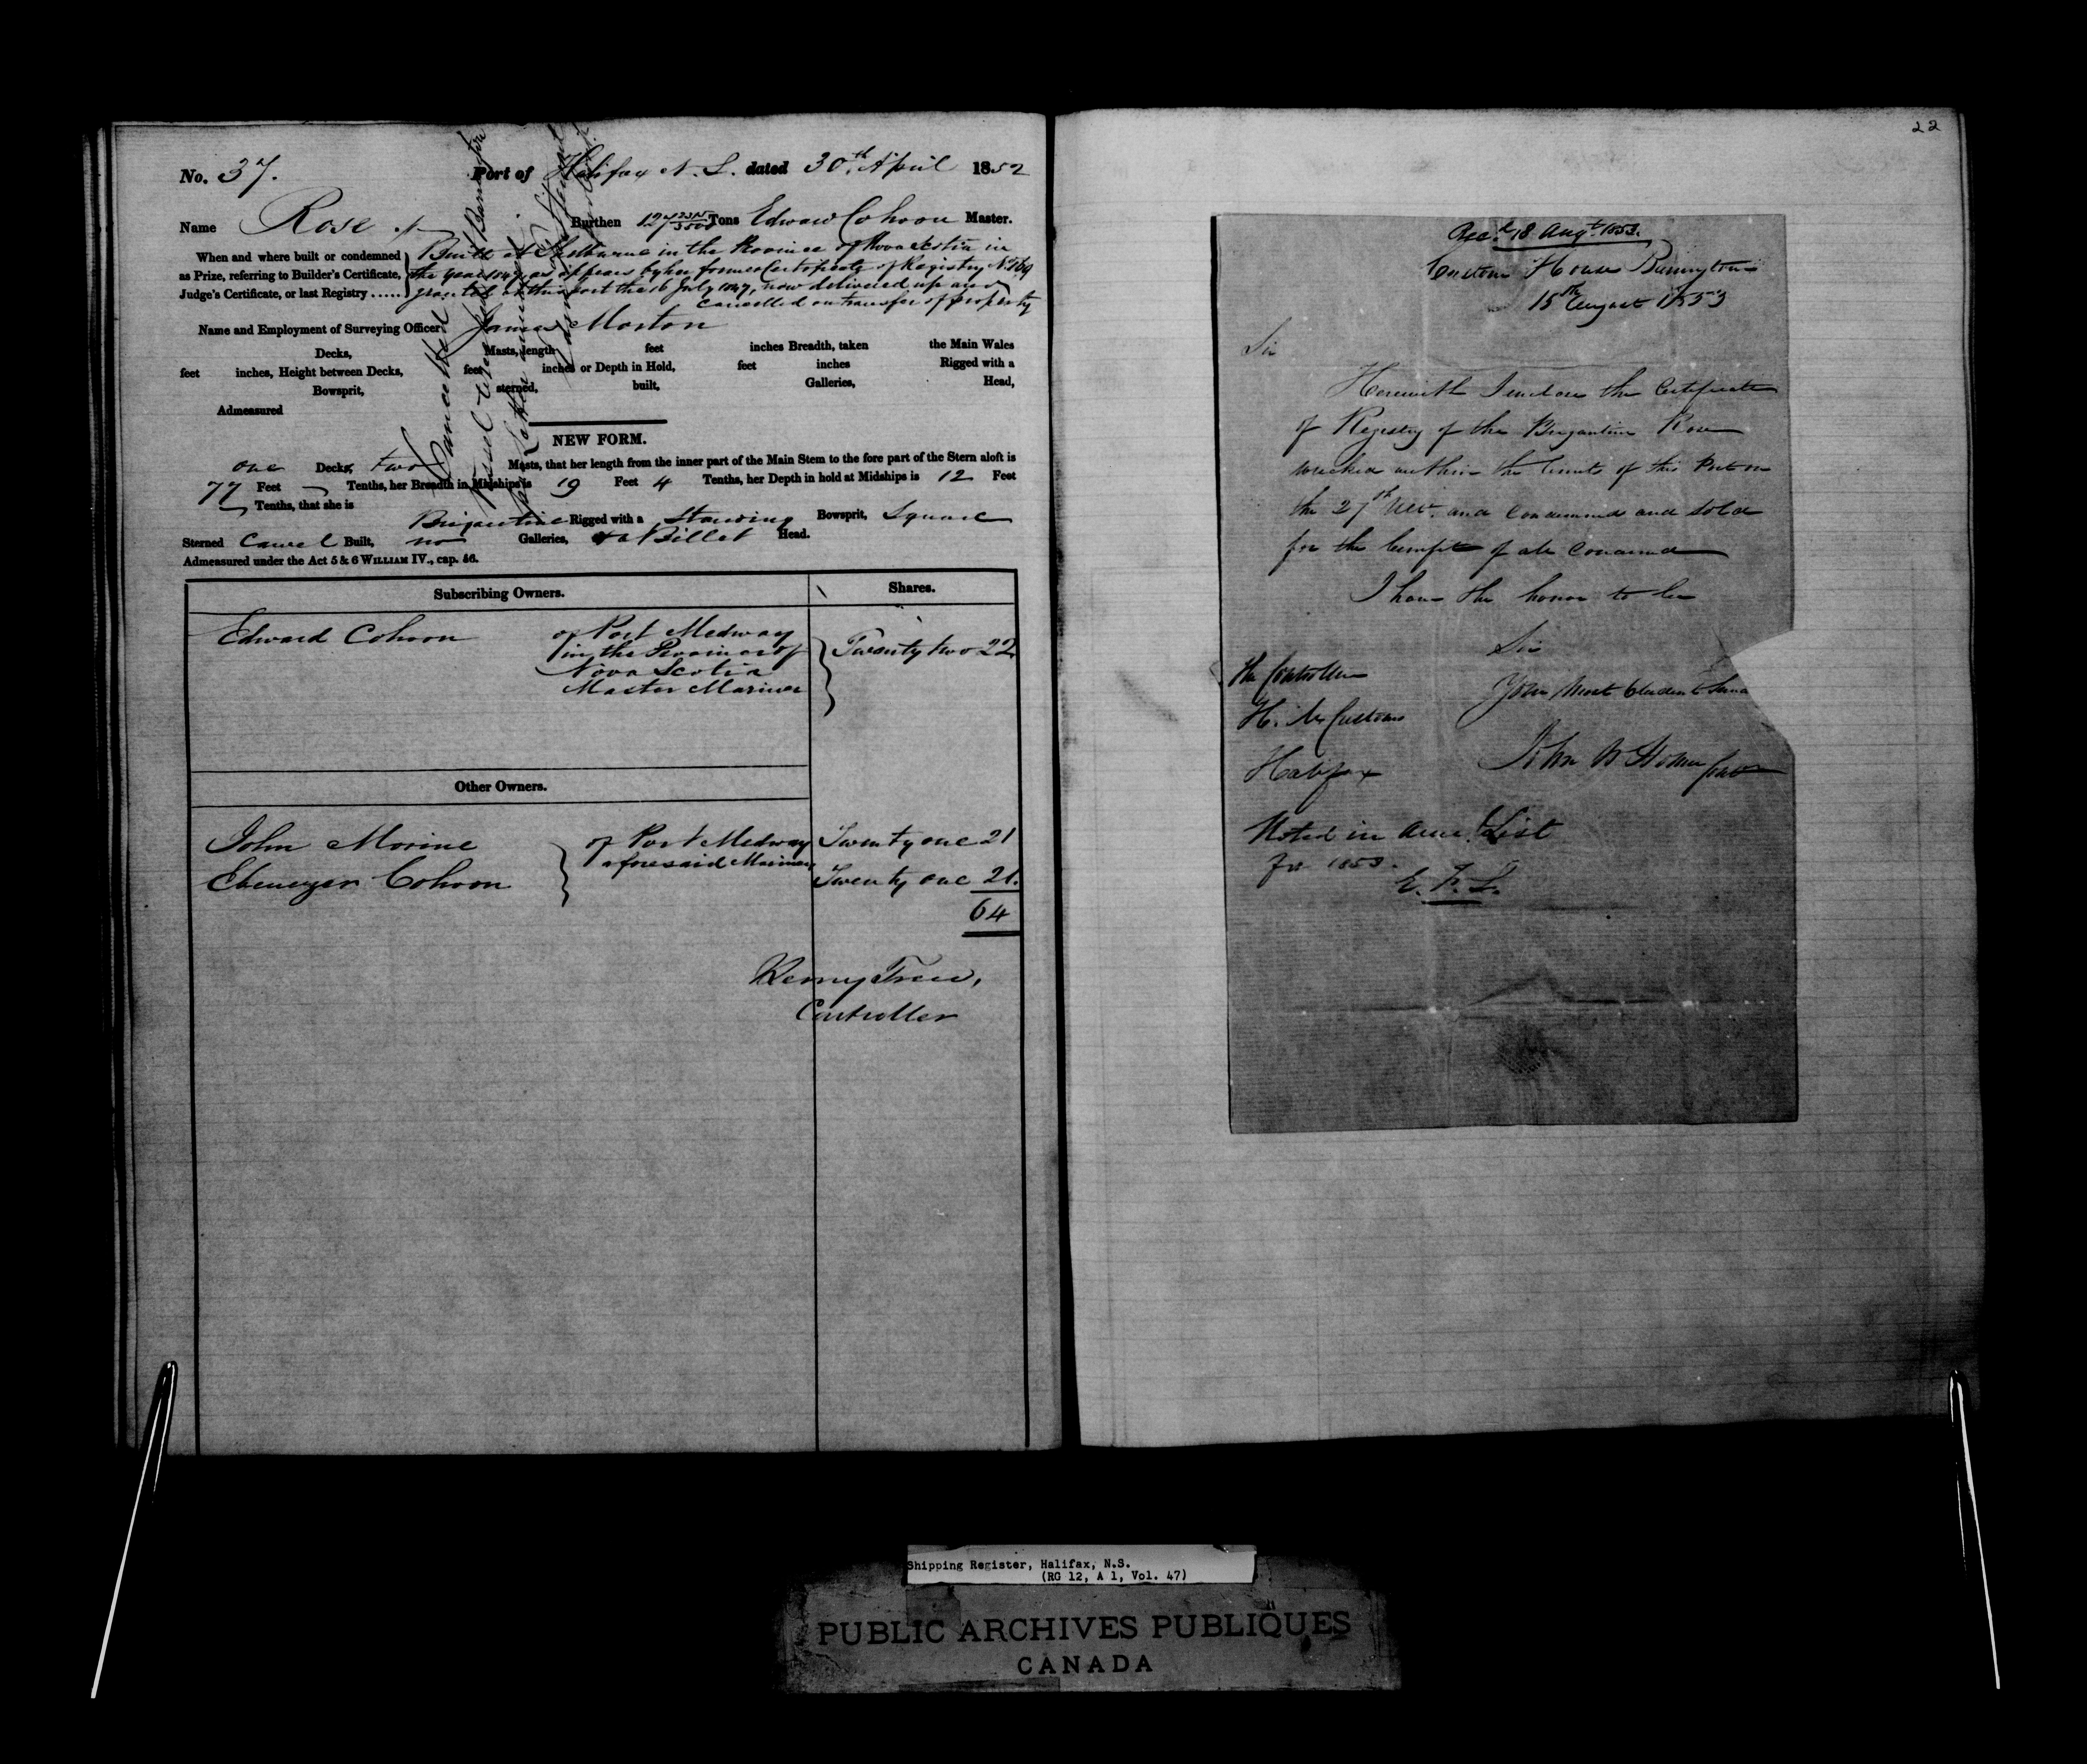 No. 37. Port of Halifax N. S. dated 30th April 1852
Name Rose Burthen 127 2315/3500 Tons Edward Cohoon Master.
When and where built or condemned as Prize, referring to Builder's Certificate, Judge's Certificate, or last Registry .....
Built at Shelburne in the Province of Nova Scotia in
the year 1847, as appears by her former Certificate of Registry No. 
granted at this port the 16 July 1847, now delivered up and
cancelled on transfer of property
Name and Employment of Surveying Officer James Morton
Decks, Masts, length feet inches Breadth, taken the Main Wales
feet inches, Height between Decks, feet inches or Depth in Hold, feet inches Rigged with a
Bowsprit, sterned, built, Galleries, Head,
Admeasured
Cancelled
NEW FORM.
one Decks, two Masts, that her length from the inner part of the Main Stem to the fore part of the Stern aloft is
77 Feet Tenths, her Breadth in Midships is 19 Feet 4 Tenths, her Depth in hold at Midships is 12 Feet
Tenths, that she is
Brigantine Rigged with a Standing Bowsprit, Square
Sterned Carvel Built, no Galleries, & a Billet Head.
Admeasured under the Act 5 & 6 WILLIAM IV., cap. 56.
Subscribing Owners. Shares.
Edward Cohoon of Port Medway Twenty two 22
in the Province of
Nova Scotia
Master Mariner
Other Owners.
John Morine of Port Medway Twenty one 21
aforesaid Mariners
Ebenezer Cohoon Twenty one 21.
64
Henry Trew,
Controller
22
Recd. 18 Augt. 1853.
Custom House Barrington
15th August 1853
Sir
Herewith I enclose the Certificate
of Registry of the Brigantine Rose
wrecked within the limits of this Port on
the 27th Ulto. and Condemned and Sold
for the benefit of all Concerned
I have the honor to be
Sir
Your Most Obedient Serva
The Controller
H. M. Customs
Halifax
John W Homer
Noted in Acct. List
for 1853.
E. F. L.
Shipping Register, Halifax, N.S.
(RG 12, A 1, Vol. 47)
PUBLIC ARCHIVES PUBLIQUES
CANADA